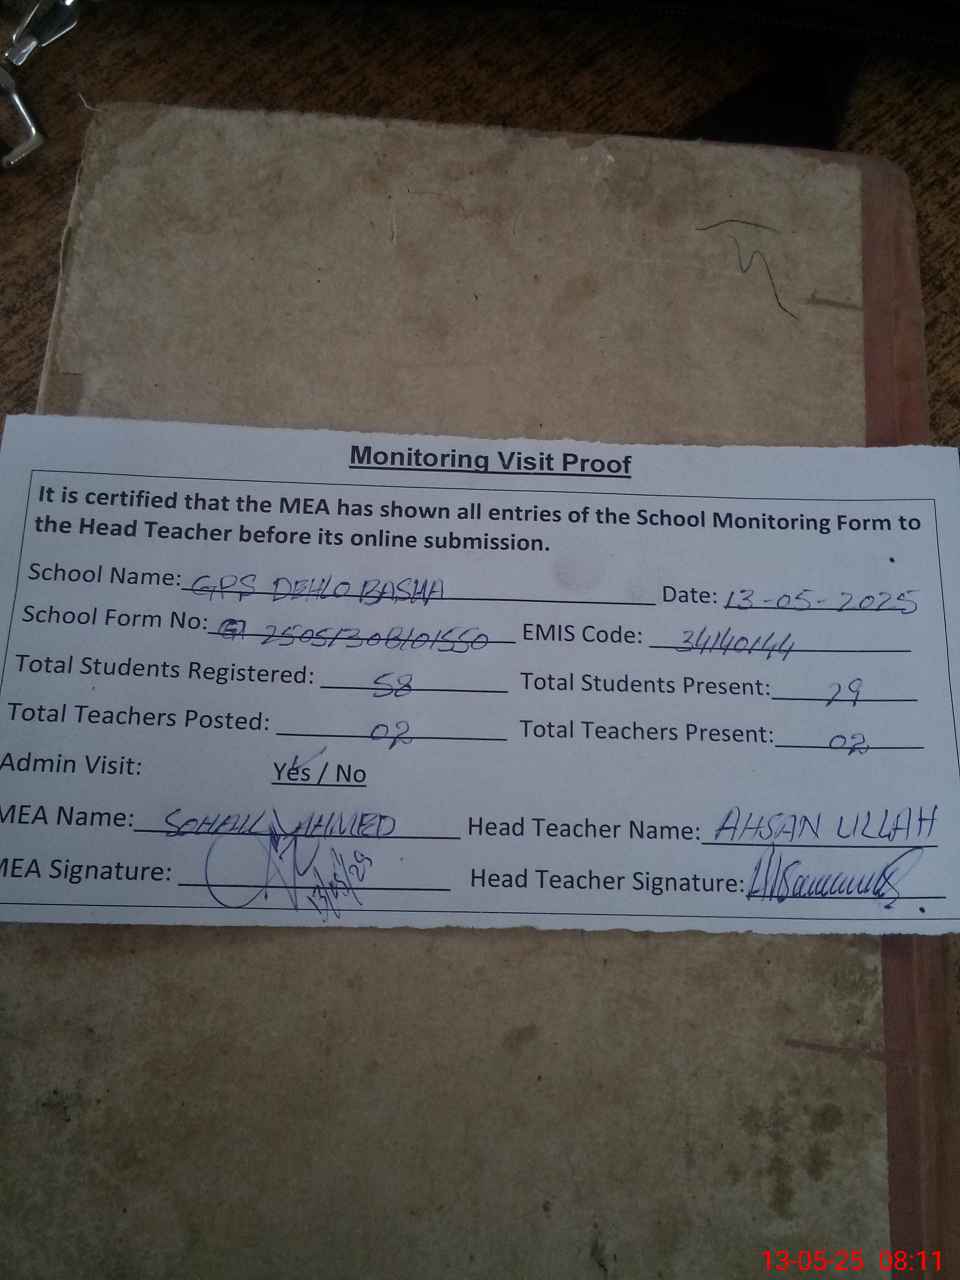 Monitoring Visit Proof
It is certified that the MEA has shown all entries of the School Monitoring Form to
the Head Teacher before its online submission.
School Name: GPS DEHLO BASHA Date: 13-05-2025
School Form No: EMIS Code: 34140144
Total Students Registered: 58 Total Students Present: 29
Total Teachers Posted: 02 Total Teachers Present: 02
Admin Visit: Yes / No
MEA Name: SOHAIL AHMED Head Teacher Name: AHSAN ULLAH
MEA Signature: Head Teacher Signature:
13-05-25 08:11